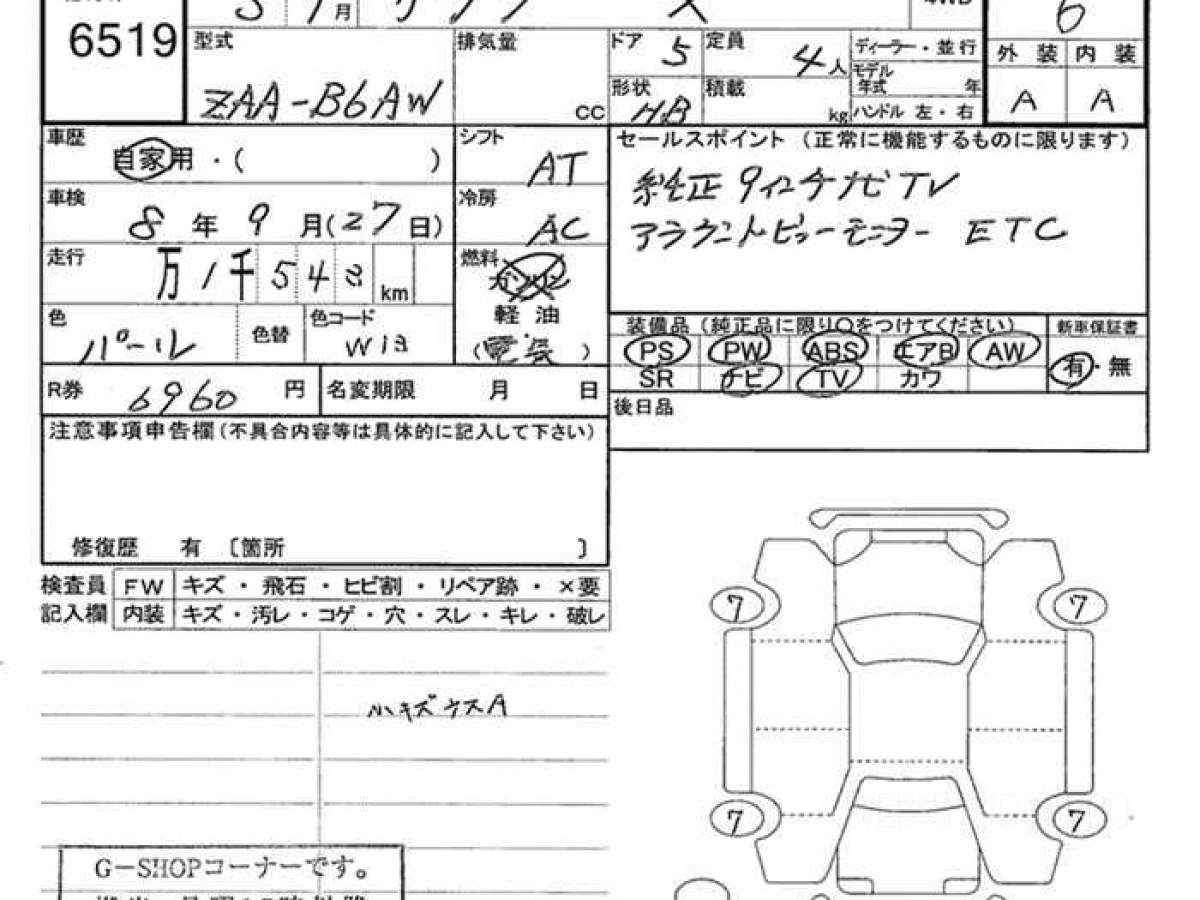 5 9月 4WD 6
6519 型式 排気量 ドア 5 定員 4人 ディーラー・並行 外装 内装
モデル年式 年
ZAA-B6AW CC 形状 H.B 積載 kg ハンドル 左・右 A A
車歴 自家用・( ) シフト AT セールスポイント (正常に機能するものに限ります)
純正 9インチナビ TV
車検 8年9月(27日) 冷房 AC アラウンドビューモニター ETC
走行 万1千543km 燃料 ガソリン
軽油
色 パール 色替 色コード W13 (電気) 装備品(純正品に限り○をつけてください) 新車保証書
PS PW ABS エアB AW 有・無
SR ナビ TV カワ
R券 6960円 名変期限 月 日 後日品
注意事項申告欄(不具合内容等は具体的に記入して下さい)
修復歴 有 〔箇所 〕
検査員 FW キズ・飛石・ヒビ割・リペア跡・×要
記入欄 内装 キズ・汚レ・コゲ・穴・スレ・キレ・破レ
7 7
小キズウスA
7 7
G-SHOPコーナーです。